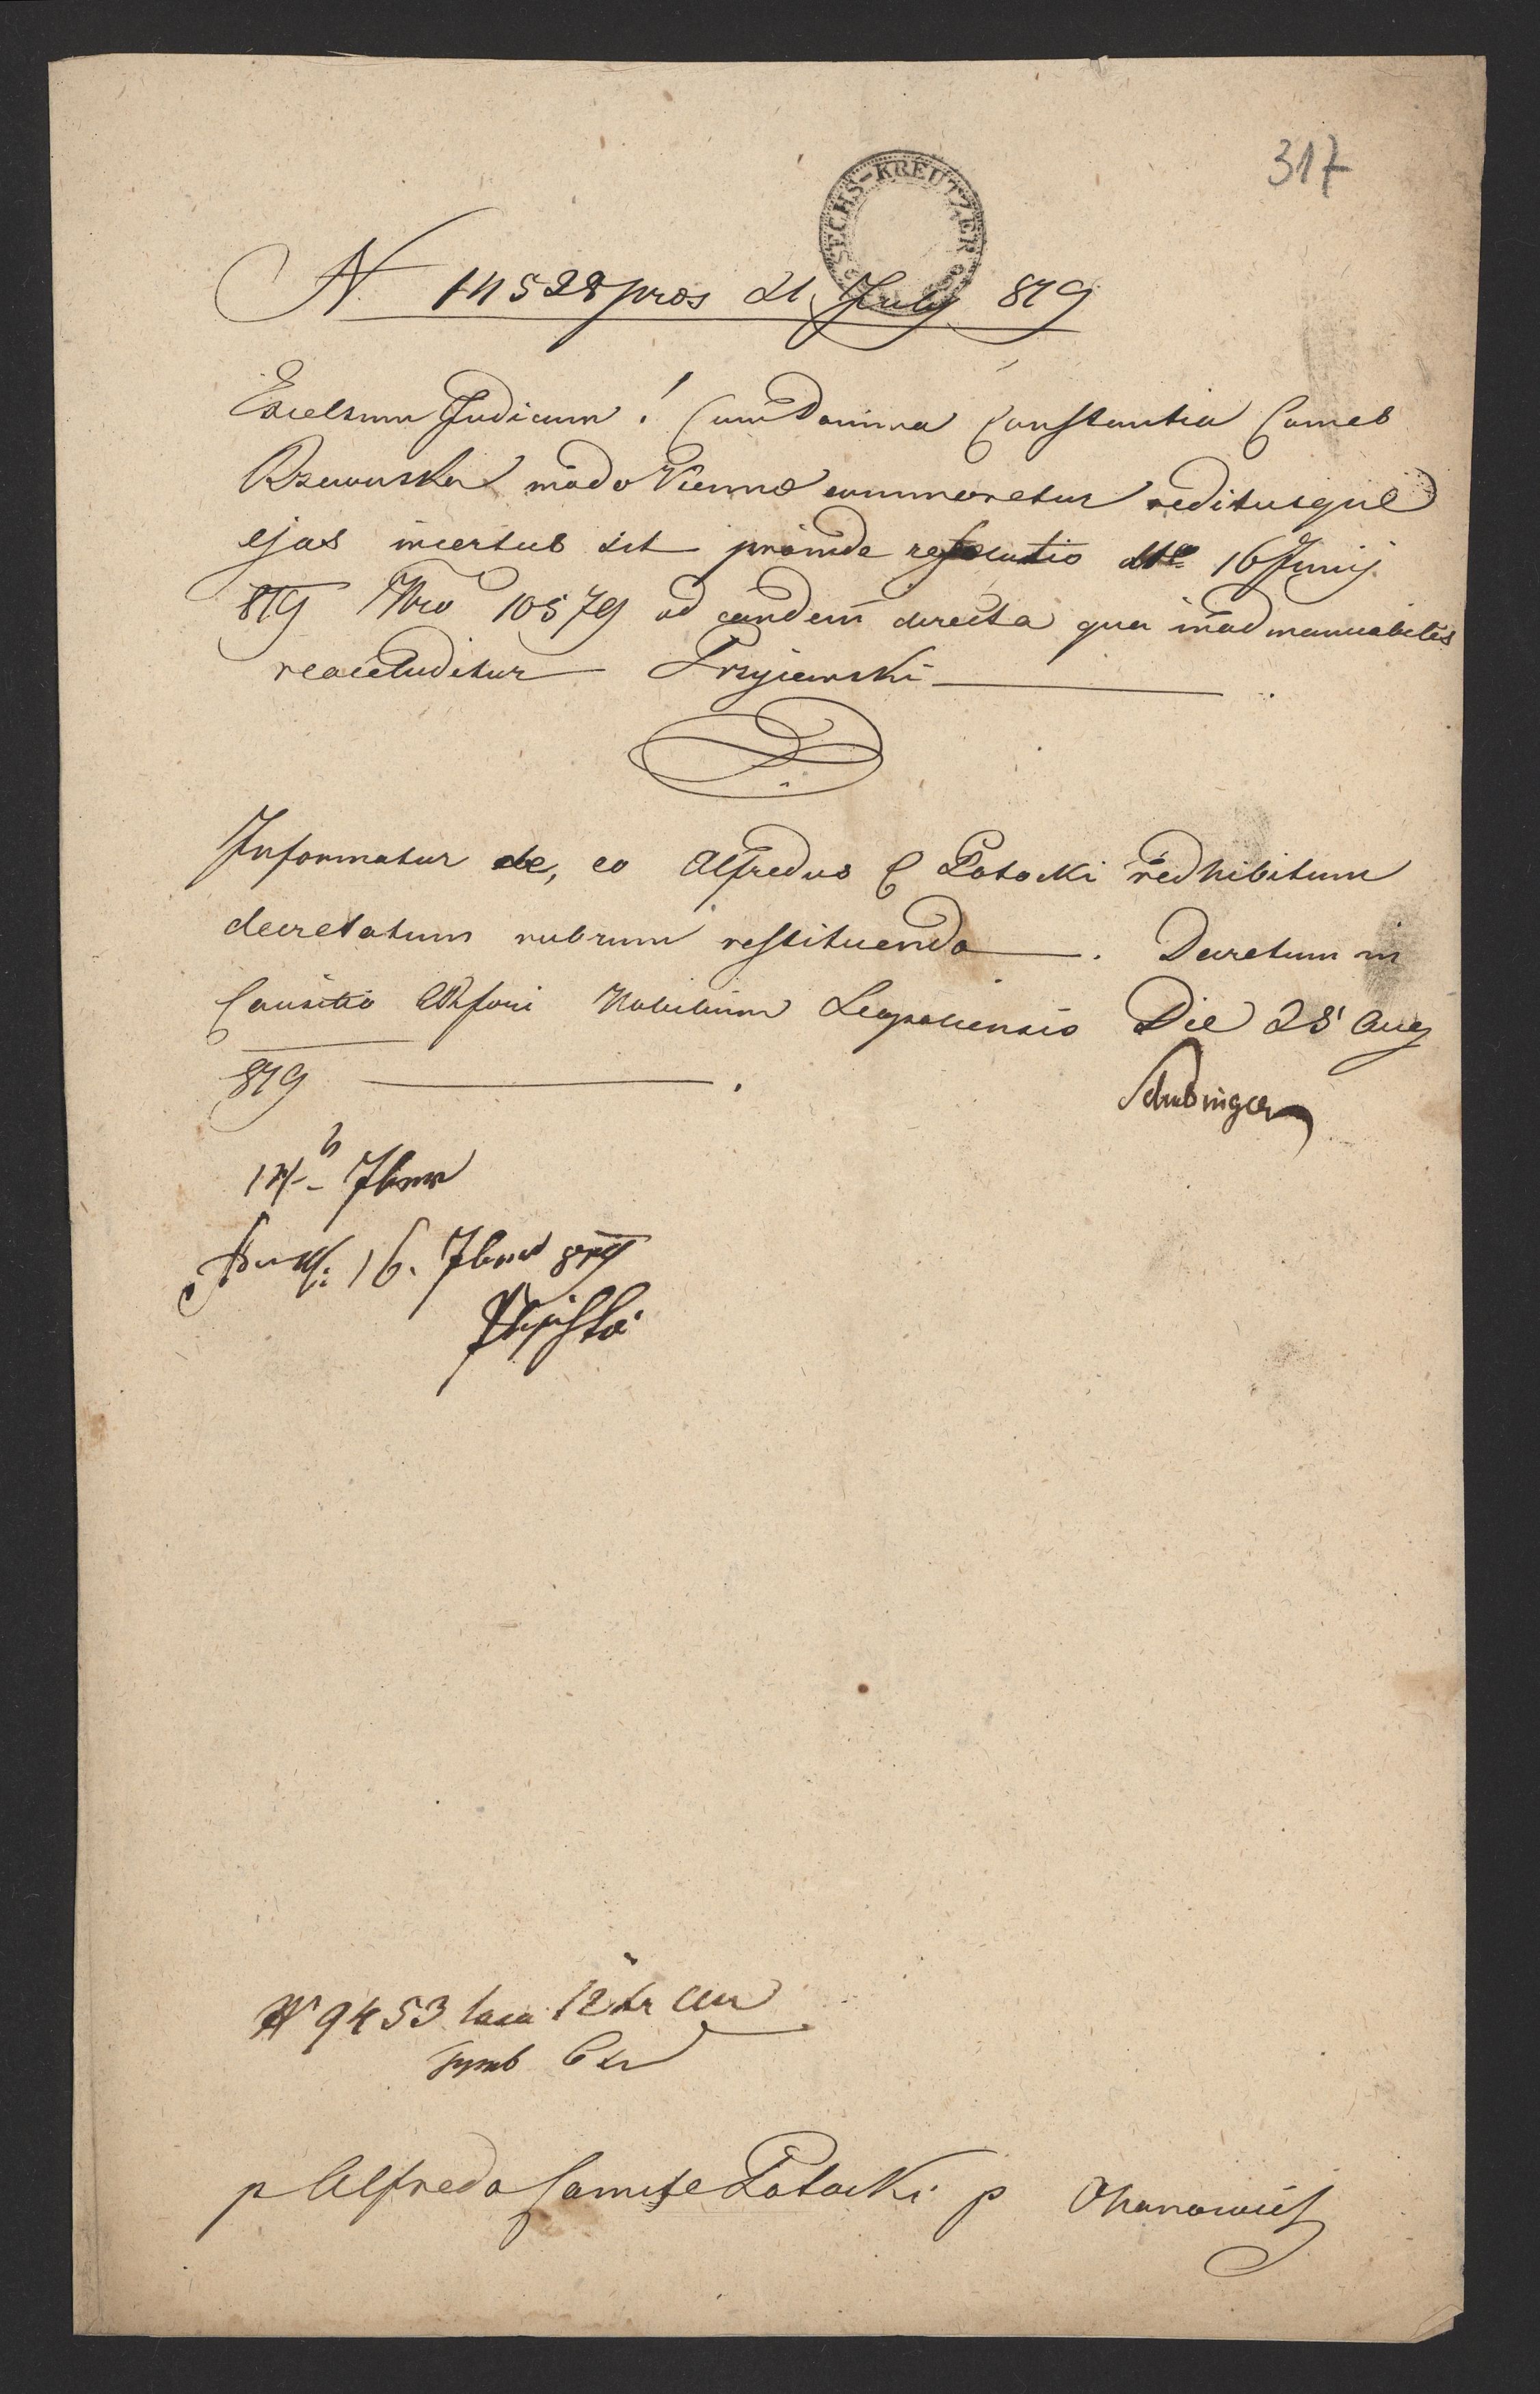 317
SECHS-KREUTZER
N 14528 pras 21 July 819
Excelsum Judicium! Cum Domina Constantia Comes
Rzewuska modo Viennæ commoretur reditusque
ejus incertus sit proinde resolutio dtto 16 Junij
819 Nro 10579 ad eandem directa qua inadmanuabilis
reaccluditur Przyiemski
Informatur de, eo Alfredus C Potocki redhibitum
decretatum rubrum restituendo. Decretum in
Consilio C R fori Nobilium Leopoliensis Die 28 Aug
819
Schubinger
14 7bris
16. 7bris 819
N 9453 taxa 12 xr
Symb 6 xr
p Alfredo Comite Potocki p Ohanowicz